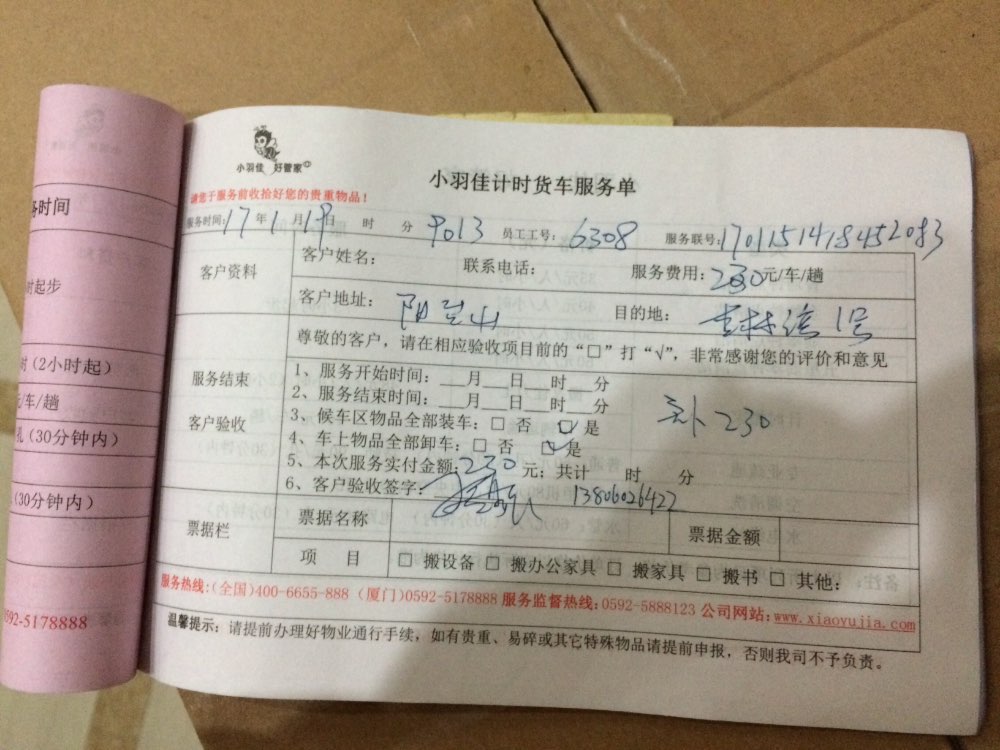 小羽佳 好管家
小羽佳计时货车服务单
请您于服务前收拾好您的贵重物品！
服务时间：17年1月19日 时 分 9013 员工工号：6308 服务联号：1701151418452083
客户资料 客户姓名： 联系电话： 服务费用：230元/车/趟
客户地址： 阳 山 目的地： 吉林 1号
尊敬的客户，请在相应验收项目前的“□”打“√”，非常感谢您的评价和意见
服务结束
客户验收
1、服务开始时间：__月__日__时__分
2、服务结束时间：__月__日__时__分
3、候车区物品全部装车：□ 否 ☑ 是
4、车上物品全部卸车：□ 否 ☑ 是
5、本次服务实付金额：230元；共计 时 分
6、客户验收签字： 13806026427
230
票据栏 票据名称 票据金额
项 目 □ 搬设备 □ 搬办公家具 □ 搬家具 □ 搬书 □ 其他：
服务热线：(全国)400-6655-888 (厦门)0592-5178888 服务监督热线：0592-5888123 公司网站：www.xiaoyujia.com
温馨提示：请提前办理好物业通行手续，如有贵重、易碎或其它特殊物品请提前申报，否则我司不予负责。
务时间
时起步
时（2小时起）
元/车/趟
孔（30分钟内）
（30分钟内）
0592-5178888